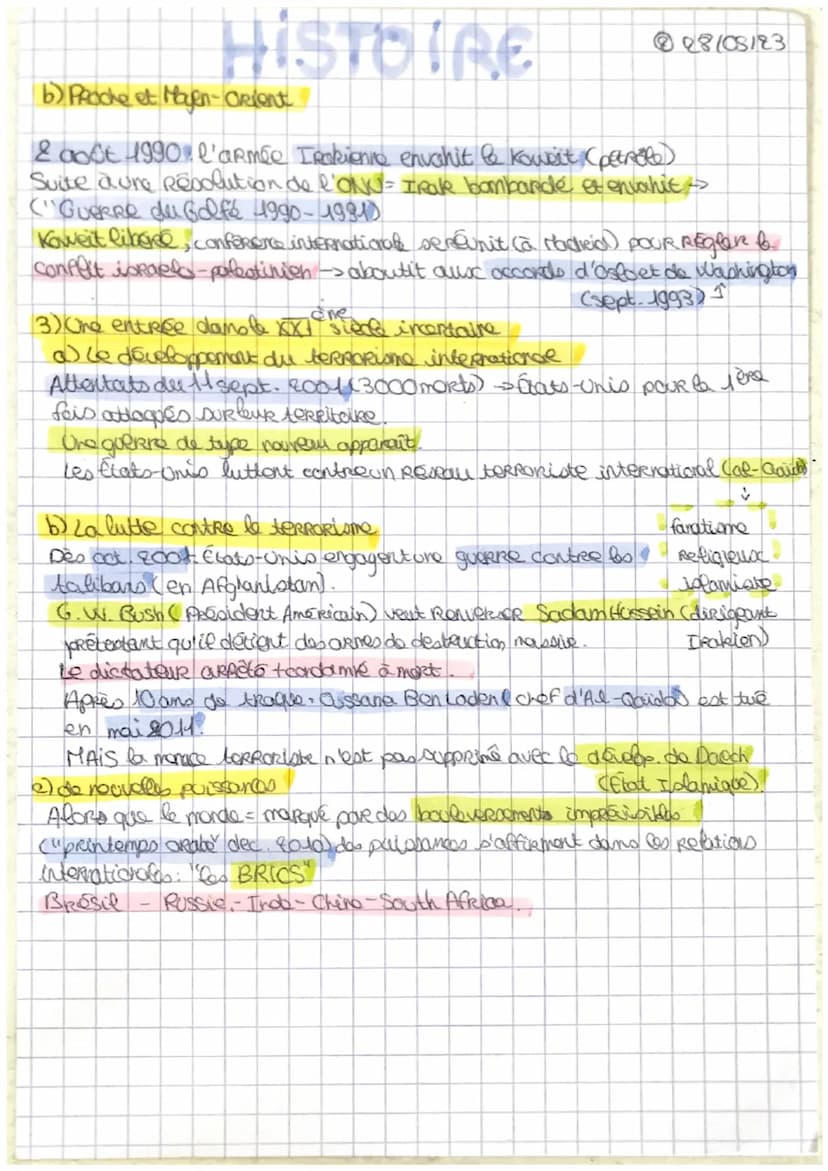 HiSTOiRE
② 28/05/23
b) Proche et Moyen-Orient
2 août 1990: l'armée Irakienne envahit le Koweït (pétrole)
Suite à une Résolution de l'ONU = Irak bombardé et envahit →
("Guerre du Golfe 1990-1991)
Koweït libéré, conférence internationale se réunit (à Madrid) pour Régler le
conflit israelo-palestinien → aboutit aux accords d'Oslo et de Washington
(sept. 1993) ↑
3) Une entrée dans le XXIème siècle incertaine
a) Le développement du terrorisme internationale
Attentats du 11 sept. 2001 (3000 morts) → États-Unis pour la 1ère
fois attaqués sur leur territoire.
Une guerre de type nouveau apparait.
Les États-Unis luttent contre un Réseau terroriste international (al-Qaïda)
↓
b) La lutte contre le terrorisme
fanatisme
Religieux
islamiste
Dès oct. 2001 États-Unis engagent une guerre contre les
talibans (en Afghanistan).
G.W. Bush (Président Américain) veut Renverser Sadam Hussein (dirigeant
Irakien)
prétextant qu'il détient des armes de destruction massive.
Le dictateur arrêté + condamné à mort.
Après 10 ans de traque, Oussama Ben Laden (chef d'Al-Qaïda) est tué
en mai 2011.
MAiS la menace terroriste n'est pas supprimé avec le dévelop. de Daech
(État Islamique).
c) de nouvelles puissances
Alors que le monde = marqué par des bouleversements imprévisibles
("printemps arabe" dec. 2010) des puissances s'affirment dans les Relations
internationales: "les BRICS"
Brésil - Russie - Inde - Chine - South Africa.